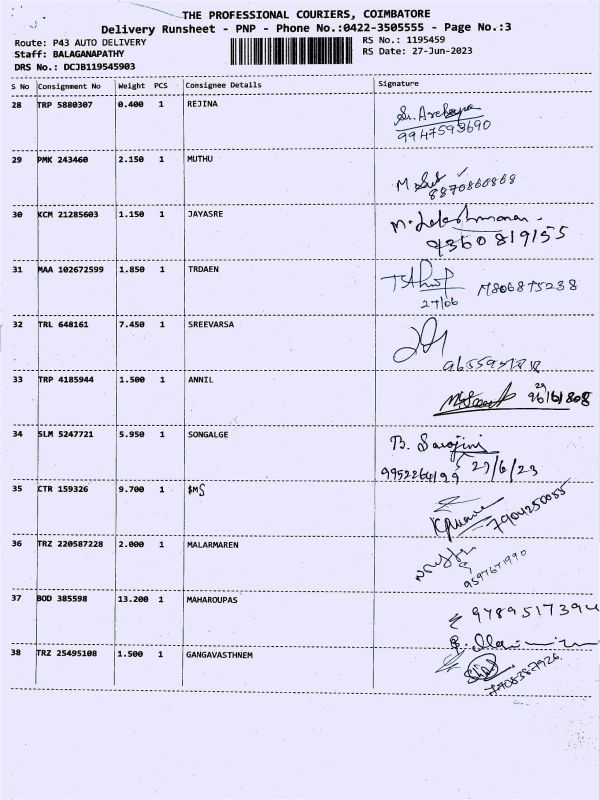 THE PROFESSIONAL COURIERS, COIMBATORE
Delivery Runsheet - PNP - Phone No.:0422-3505555 - Page No.:3
Route: P43 AUTO DELIVERY
RS No.: 1195459
Staff: BALAGANAPATHY
RS Date: 27-Jun-2023
DRS No.: DCJB119545903
S No Consignment No Weight PCS Consignee Details Signature
28 TRP 5880307 0.400 1 REJINA
9947593690
29 PMK 243460 2.150 1 MUTHU
8870860868
30 KCM 21285603 1.150 1 JAYASRE
9360819155
31 MAA 102672599 1.850 1 TRDAEN
27/06
32 TRL 648161 7.450 1 SREEVARSA
33 TRP 4185944 1.500 1 ANNIL
34 SLM 5247721 5.950 1 SONGALGE
B. Sarojini
9952264199 27/6/23
35 CTR 159326 9.700 1 $MS
7904250055
36 TRZ 220587228 2.000 1 MALARMAREN
9597671990
37 BOD 385598 13.200 1 MAHAROUPAS
9789517394
38 TRZ 25495108 1.500 1 GANGAVASTHNEM